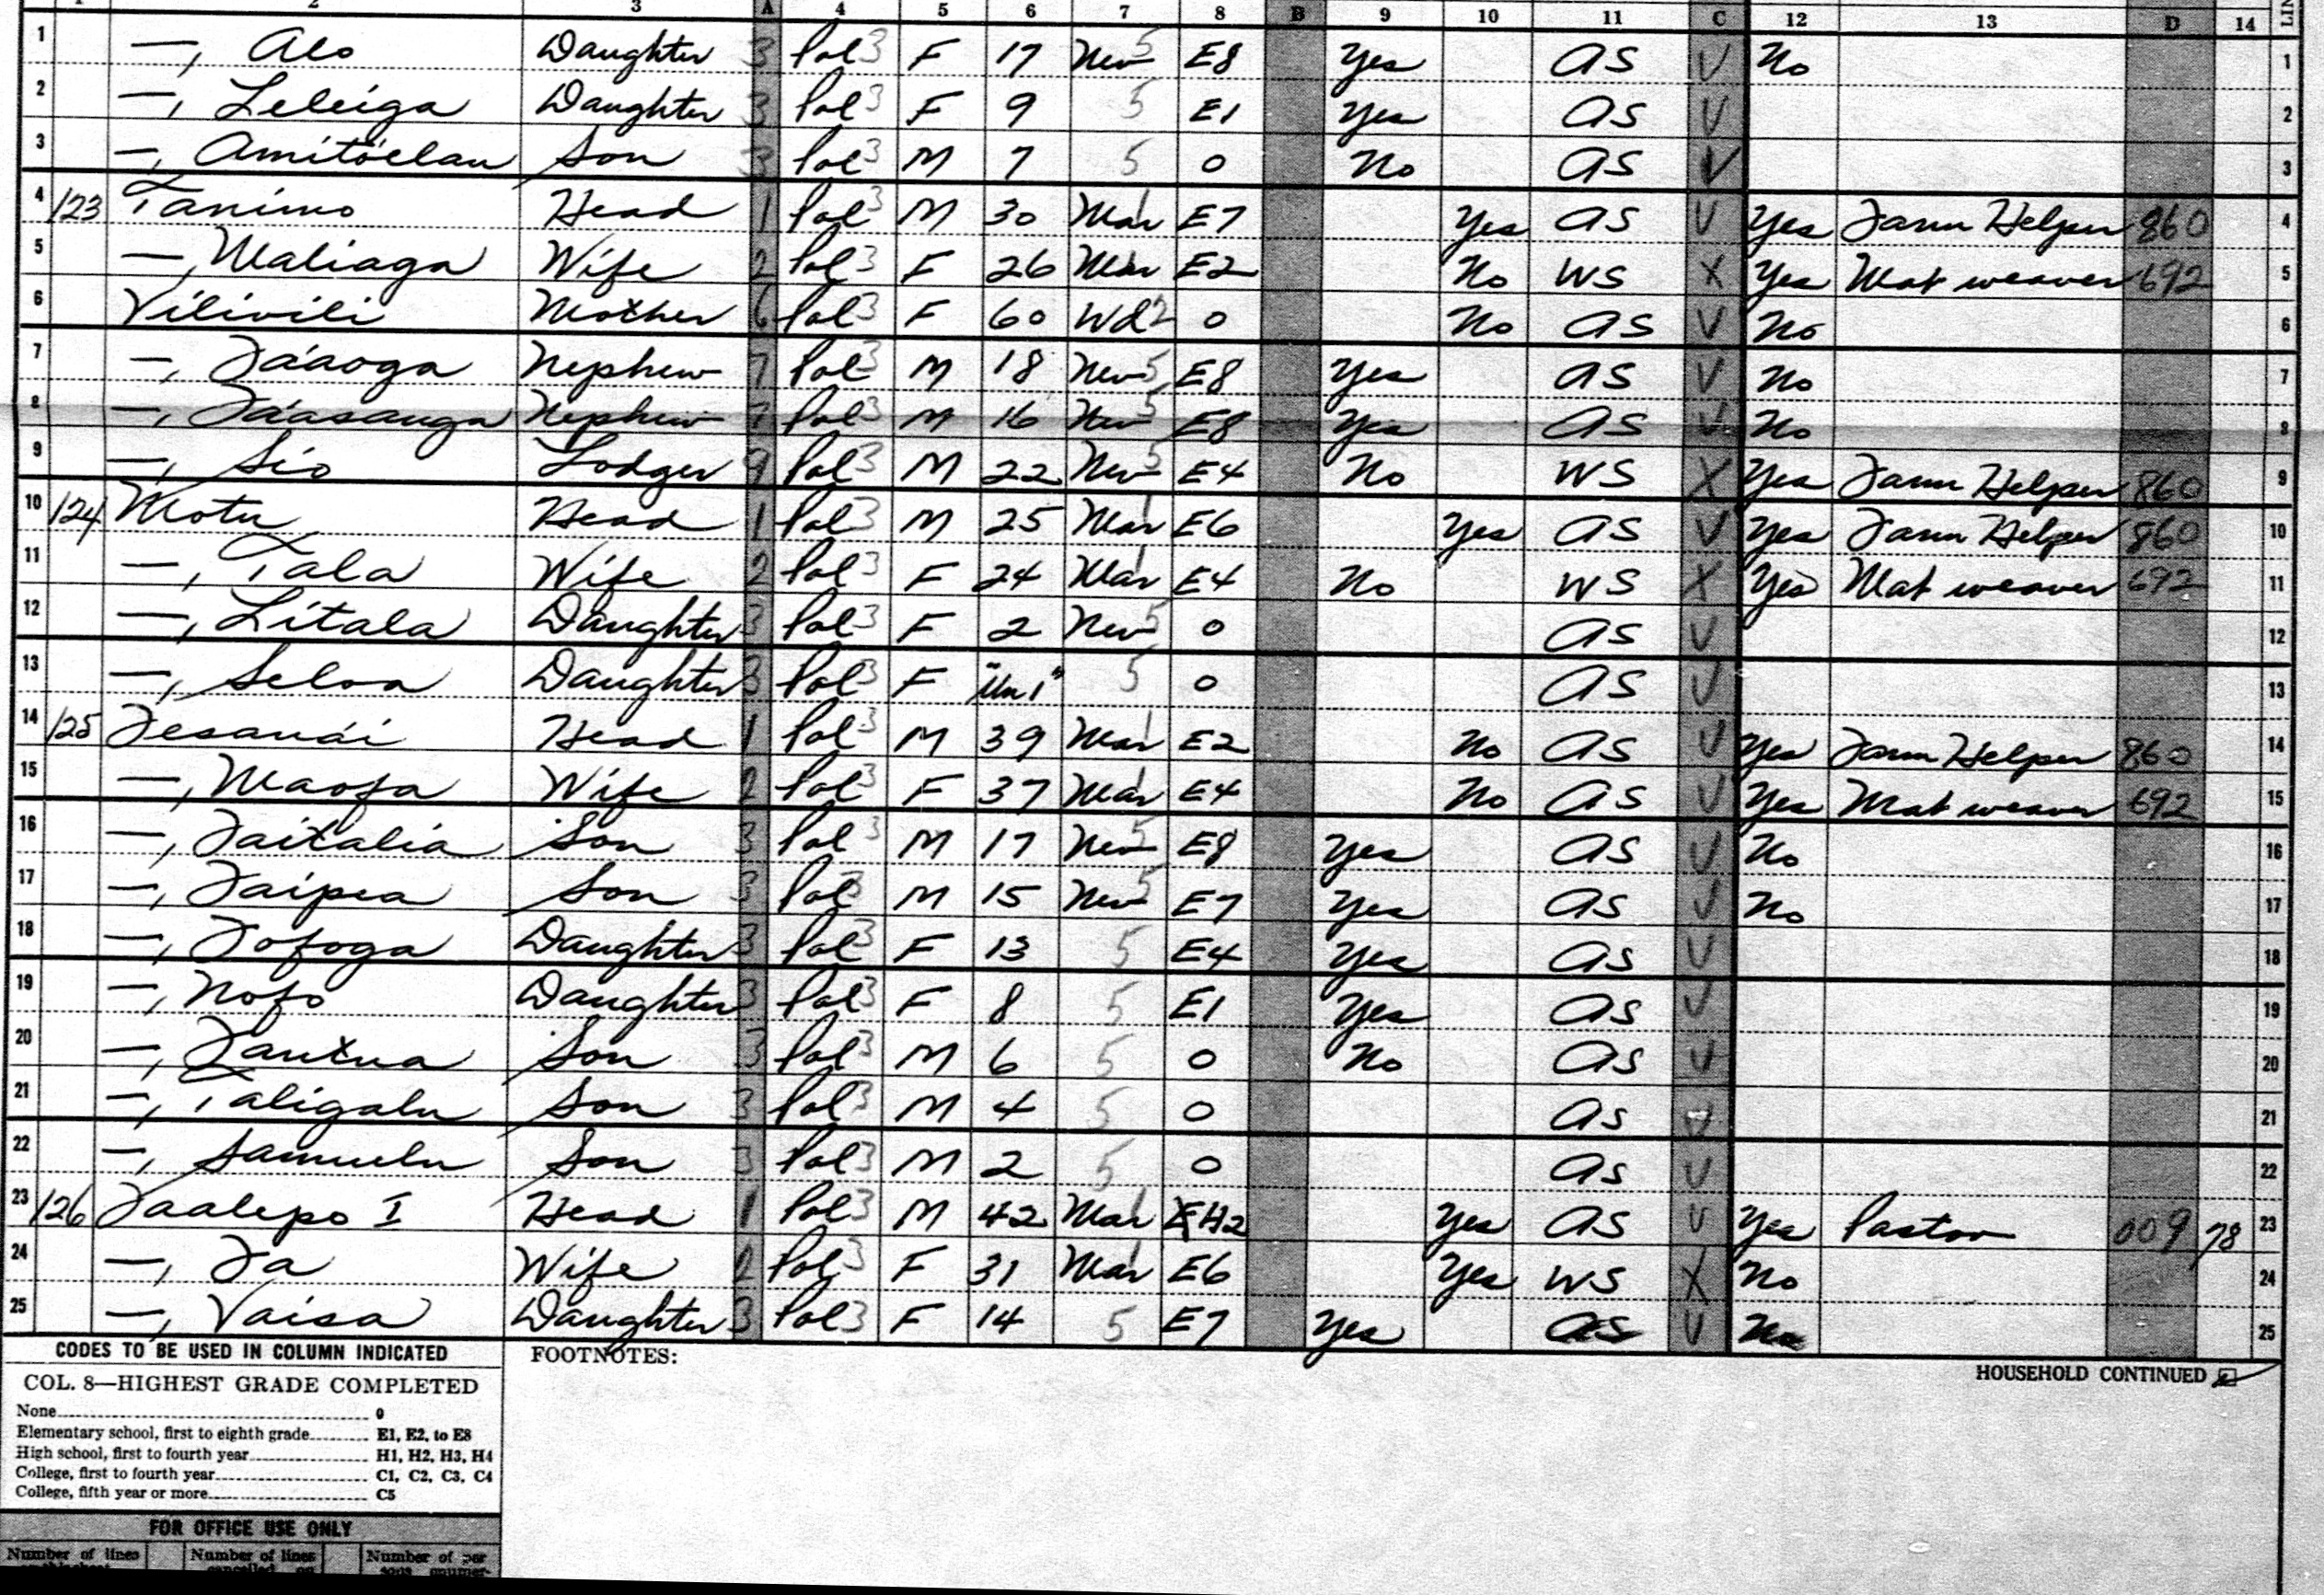 2 3 A 4 5 6 7 8 B 9 10 11 C 12 13 D 14
1 —, Alo Daughter 3 Pol 3 F 17 Nev 5 E8 Yes AS V No 1
2 —, Leleiga Daughter 3 Pol 3 F 9 5 E1 Yes AS V 2
3 —, Son 3 Pol 3 M 7 5 0 No AS V 3
4 123 Tanimo Head 1 Pol 3 M 30 Mar 1 E7 Yes AS V Yes Farm Helper 860 4
5 —, Maliaga Wife 2 Pol 3 F 26 Mar E2 No WS X Yes Mat weaver 692 5
6 Vilivili Mother 6 Pol 3 F 60 Wd 2 0 No AS V No 6
7 —, Fa'aoga Nephew 7 Pol 3 M 18 Nev 5 E8 Yes AS V No 7
8 —, Fa'asauga Nephew 7 Pol 3 M 16 Nev 5 E8 Yes AS V No 8
9 —, Sio Lodger 9 Pol 3 M 22 Nev 5 E4 No WS X Yes Farm Helper 860 9
10 124 Motu Head 1 Pol 3 M 25 Mar 1 E6 Yes AS V Yes Farm Helper 860 10
11 —, Tala Wife 2 Pol 3 F 24 Mar 1 E4 No WS X Yes Mat weaver 692 11
12 —, Litala Daughter 3 Pol 3 F 2 Nev 5 0 AS V 12
13 —, Seloa Daughter 3 Pol 3 F "Un 1" 5 0 AS V 13
14 125 Fesauai Head 1 Pol 3 M 39 Mar 1 E2 No AS V Yes Farm Helper 860 14
15 —, Maofa Wife 2 Pol 3 F 37 Mar 1 E4 No AS V Yes Mat weaver 692 15
16 —, Faitalia Son 3 Pol 3 M 17 Nev 5 E8 Yes AS V No 16
17 —, Faipea Son 3 Pol 3 M 15 Nev 5 E7 Yes AS V No 17
18 —, Fofoga Daughter 3 Pol 3 F 13 5 E4 Yes AS V 18
19 —, Nofo Daughter 3 Pol 3 F 8 5 E1 Yes AS V 19
20 —, Fautua Son 3 Pol 3 M 6 5 0 No AS V 20
21 —, Taligalu Son 3 Pol 3 M 4 5 0 AS V 21
22 —, Samuelu Son 3 Pol 3 M 2 5 0 AS V 22
23 126 Faalepo I Head 1 Pol 3 M 42 Mar 1 H2 Yes AS V Yes Pastor 009 78 23
24 —, Fa Wife 2 Pol 3 F 31 Mar 1 E6 Yes WS X No 24
25 —, Vaisa Daughter 3 Pol 3 F 14 5 E7 Yes AS V No 25
CODES TO BE USED IN COLUMN INDICATED
FOOTNOTES:
HOUSEHOLD CONTINUED
COL. 8—HIGHEST GRADE COMPLETED
None 0
Elementary school, first to eighth grade E1, E2, to E8
High school, first to fourth year H1, H2, H3, H4
College, first to fourth year C1, C2, C3, C4
College, fifth year or more C5
FOR OFFICE USE ONLY
Number of lines Number of lines Number of per